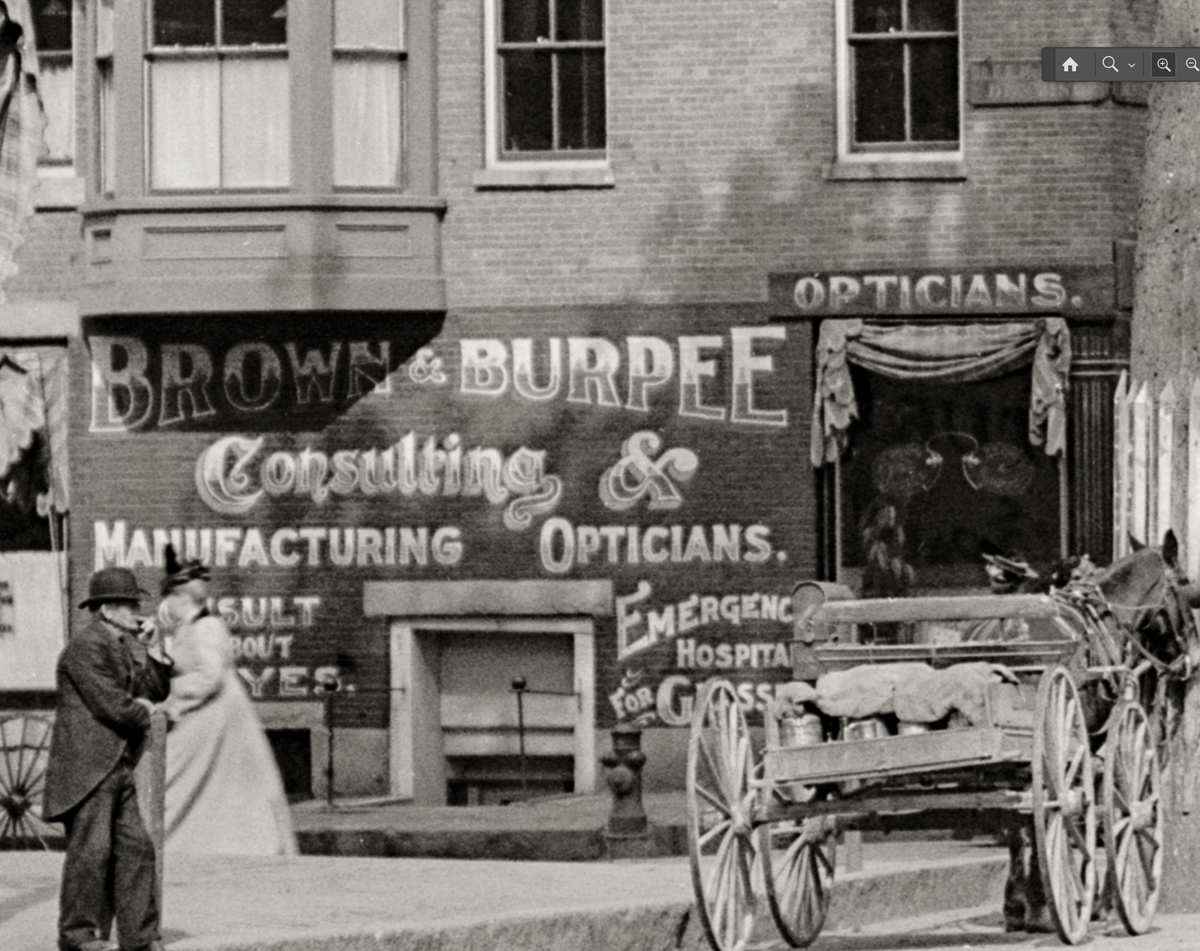 OPTICIANS.
BROWN & BURPEE
Consulting &
MANUFACTURING OPTICIANS.
NSULT
BOUT
YES.
EMERGENC
HOSPITA
FOR GLASS